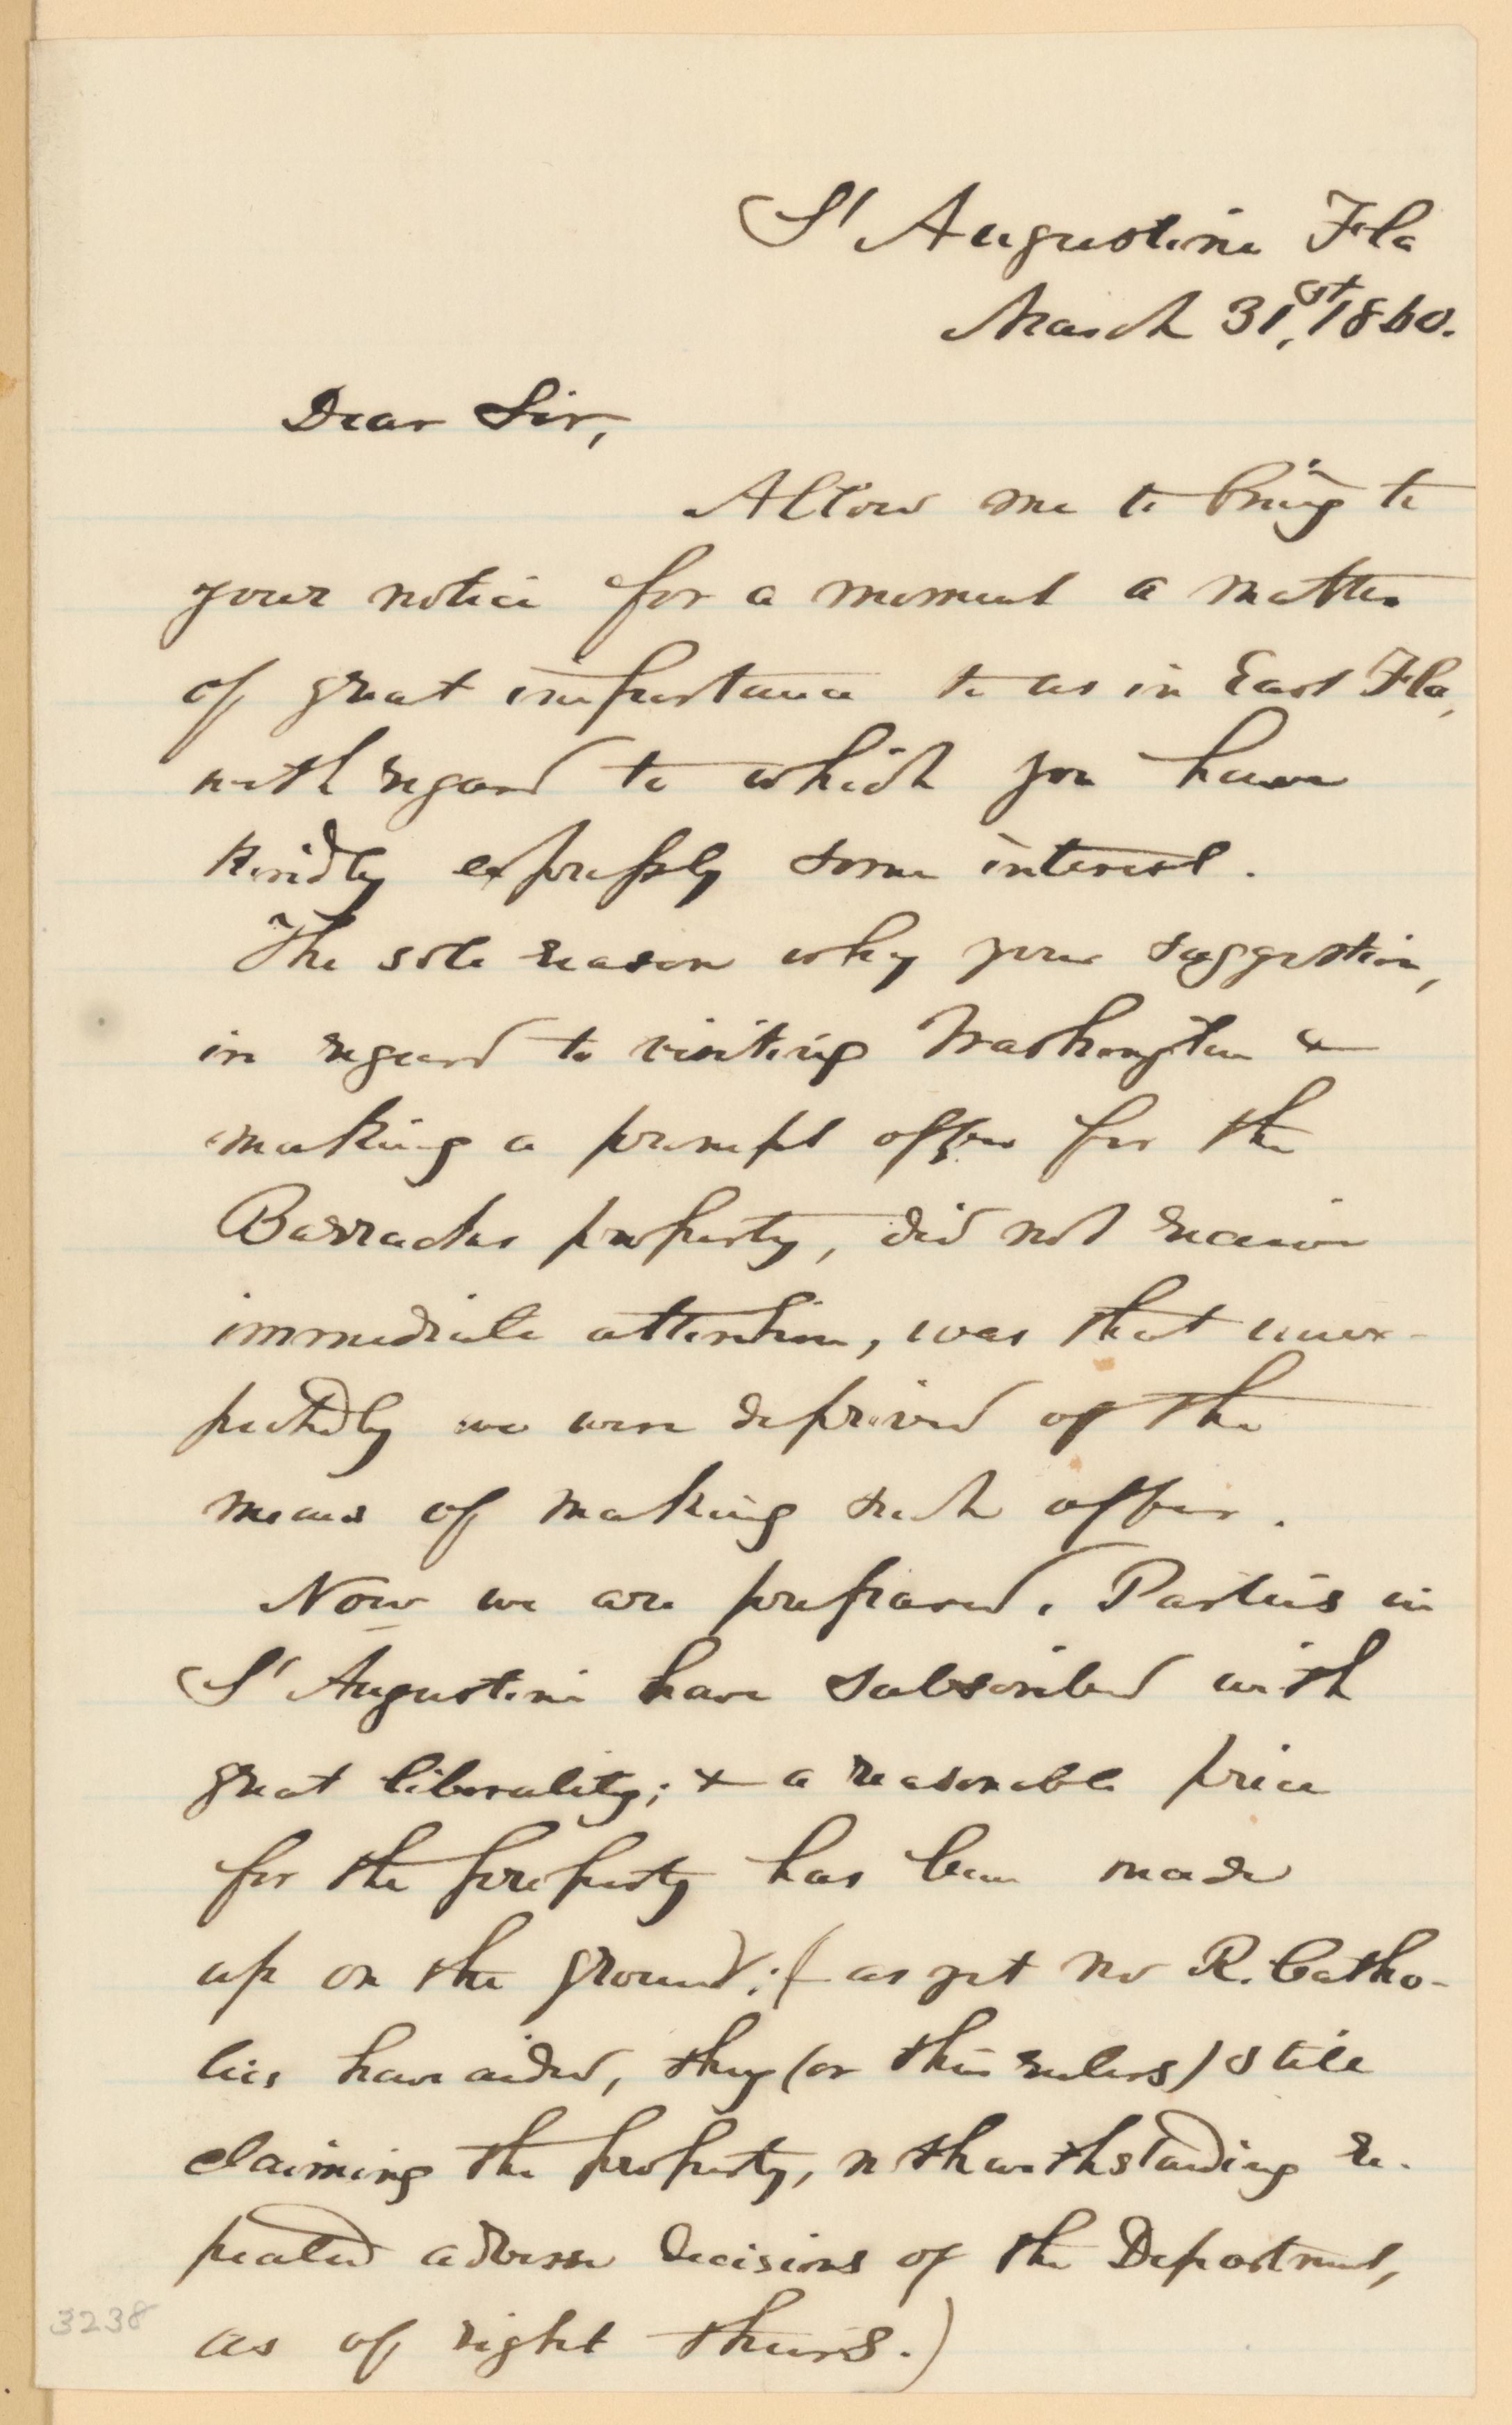 St Augustine Fla
March 31st, 1860.
Dear Sir,
Allow me to bring to
your notice for a moment a matter
of great importance to us in East Fla,
with regard to which you have
kindly expressly some interest.
The sole reason why your suggestion,
in regard to visiting Washington &
making a prompt offer for the
Barracks property, did not receive
immediate attention, was that unex-
pectedly we were deprived of the
means of making such offer.
Now we are prepared. Parties in
St Augustine have subscribed with
great liberality; & a reasonable price
for the property has been made
up on the ground; (as yet no R. Catho-
lics have aided, they (or their rulers) still
claiming the property, notwithstanding re-
peated adverse decisions of the Department,
as of right theirs.)
3238